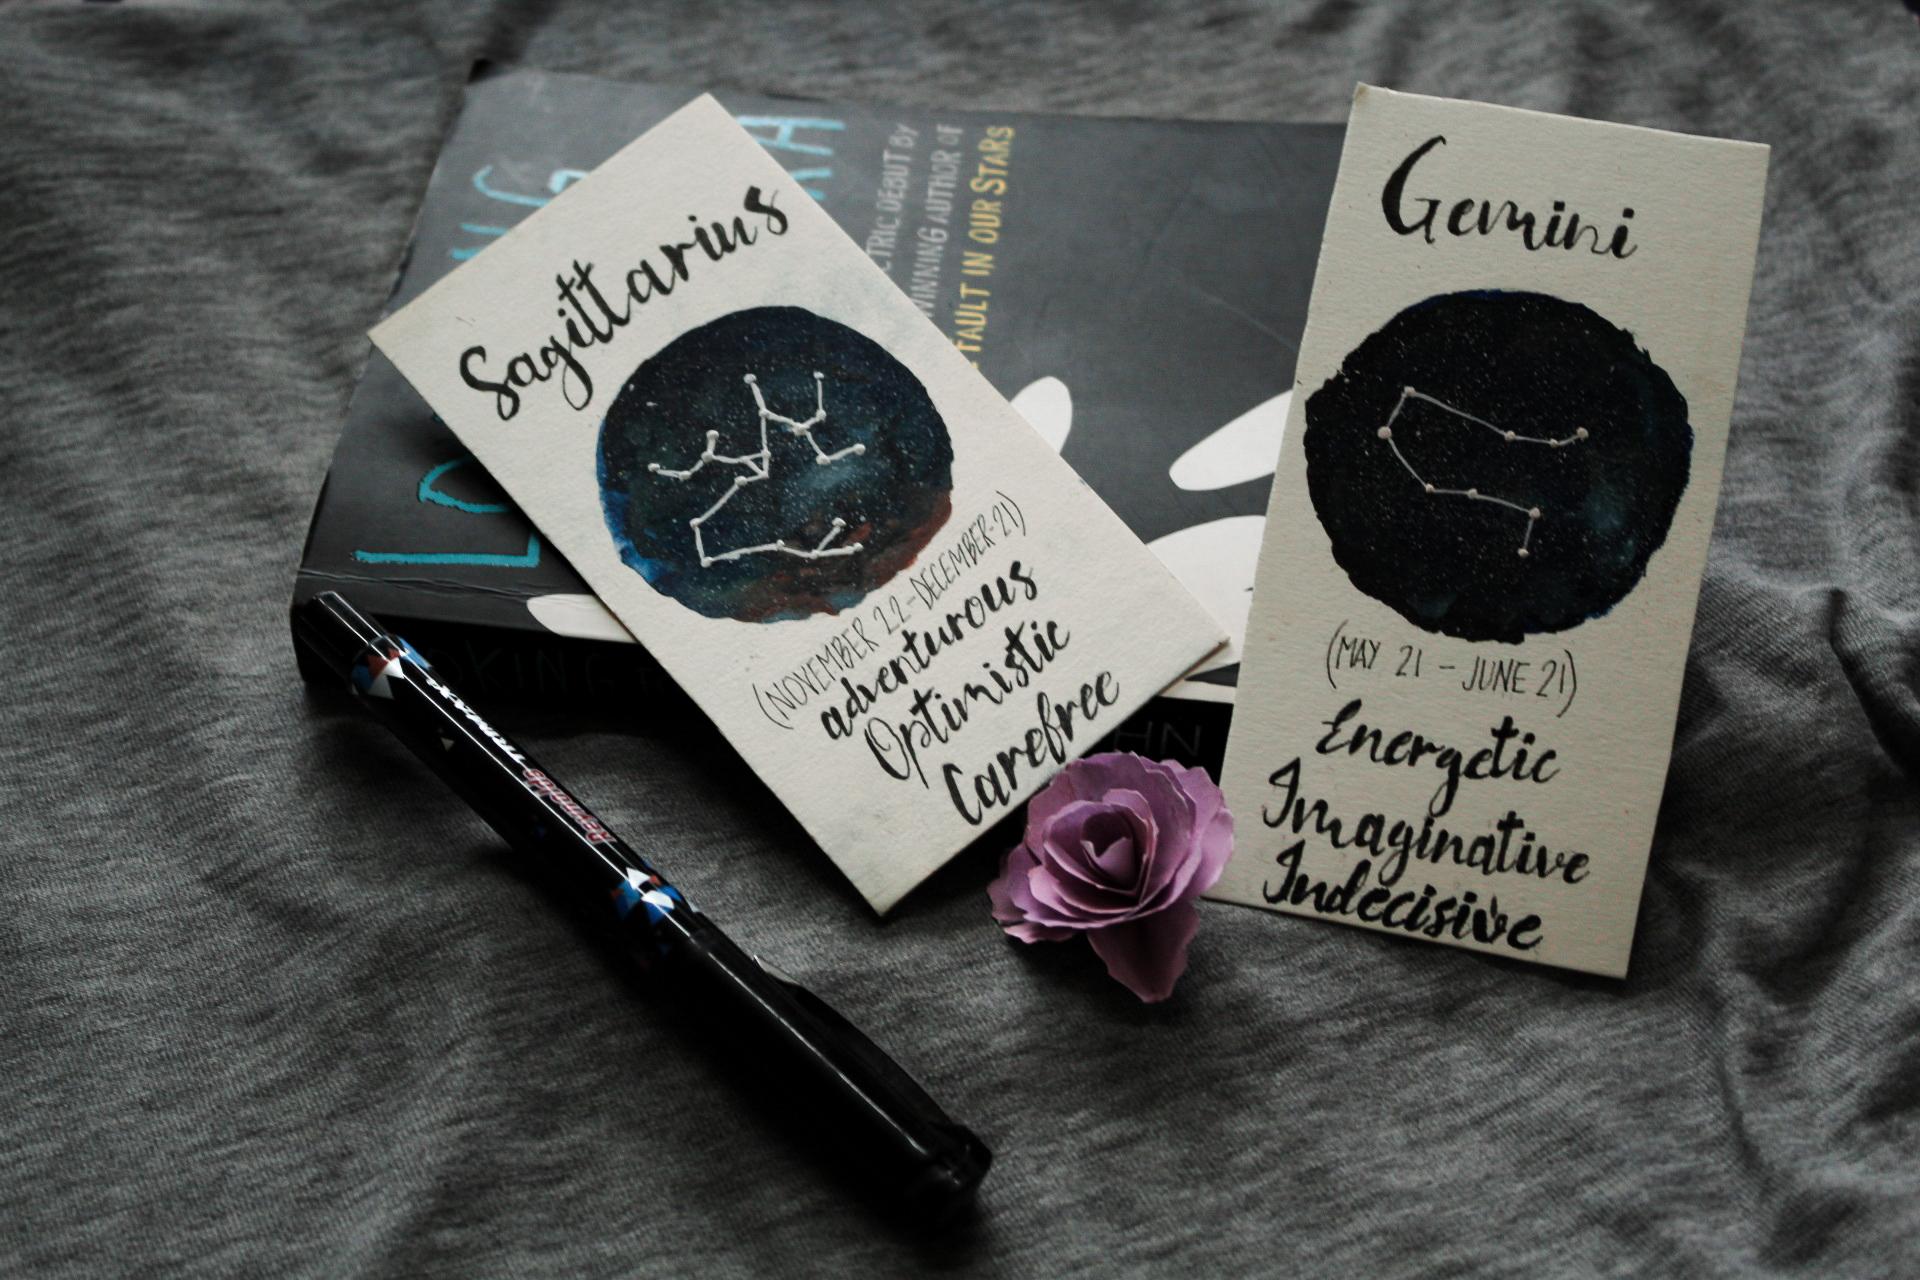 Sagittarius
(NOVEMBER 22-DECEMBER-21)
adventurous
Optimistic
Carefree
Gemini
(MAY 21 - JUNE 21)
Energetic
Imaginative
Indecisive
DEBUT BY
WINNING AUTHOR OF
FAULT IN OUR STARS
Reynolds